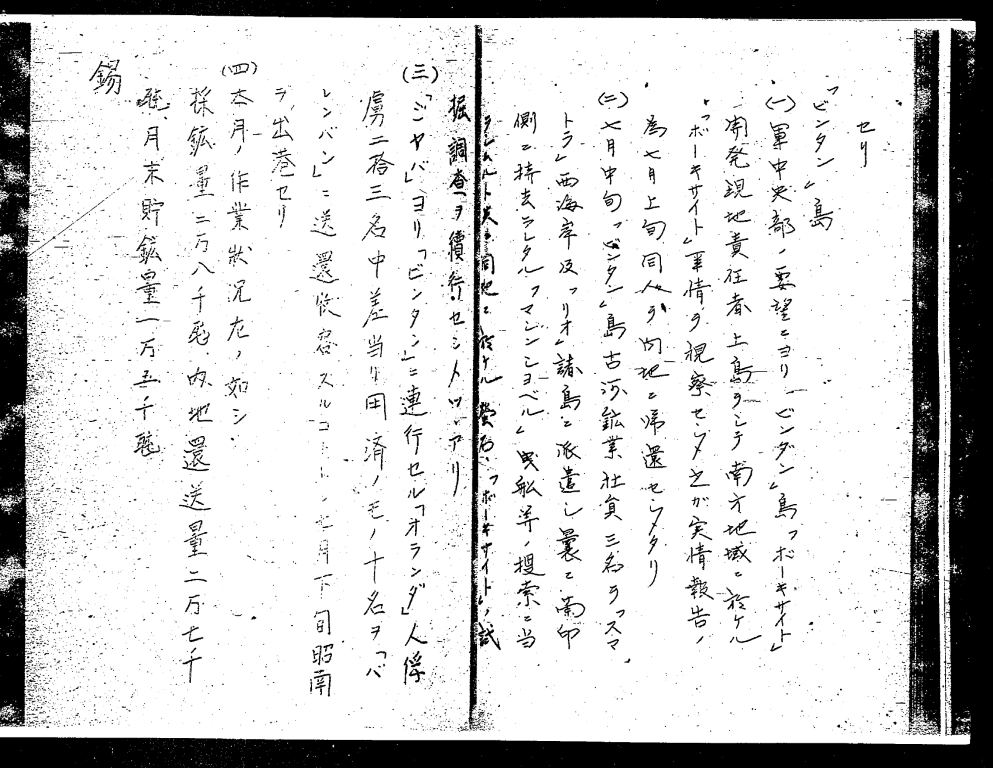 セリ
「ビンタン」島
(一)軍中央部ノ要望ニヨリ「ビンタン」島「ボーキサイト」
開発現地責任者上島ヲシテ南方地域ニ於ケル
「ボーキサイト」事情ヲ視察セシメ之ガ実情報告ノ
為七月上旬同人ヲ内地ニ帰還セシメタリ
(二)七月中旬「ビンタン」島古河鉱業社員三名ヲ「スマ
トラ」西海岸及「リオ」諸島ニ派遣シ曩ニ蘭印
側ニ持去ラレタル「マレーショベル」曳船等ノ捜索ニ当
ラシムルト共ニ同地ニ於ケル螢石、「ボーキサイト」ノ試
掘調査ヲ續行セシメツヽアリ
(三)「ジャバ」ヨリ「ビンタン」ニ連行セル「オランダ」人俘
虜二拾三名中差当リ用済ノモノ十名ヲ「パ
レンバン」ニ送還收容スルコトトシ七月下旬昭南
ヲ出港セリ
(四)本月ノ作業狀況左ノ如シ
採鉱量二万八千瓲、内地還送量二万七千
瓲、月末貯鉱量一万五千瓲
錫